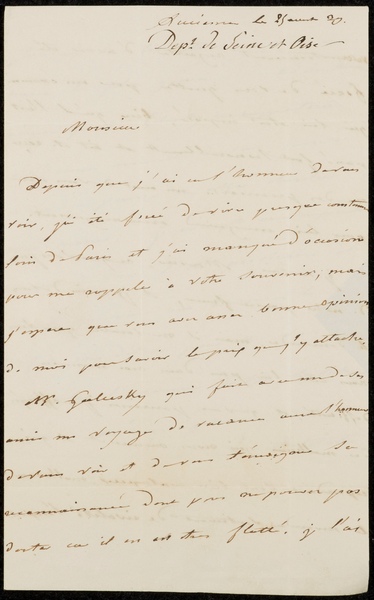 Lucienne le 25 aout 30.
Dept. de Seine et Oise
Monsieur
Depuis que j'ai eu l'honneur de vous
voir, j'ai été forcé de vivre presque
loin de Paris et j'ai manqué d'occasion
pour me rappeler à votre souvenir, mais
j'espère que vous avez assez bonne opinion
de moi pour savoir le prix que j'y attache.
Mr. qui fait avec un de ses
amis un voyage de vacance aura l'honneur
de vous voir et de vous témoigner sa
reconnaissance dont vous ne pouvez pas
douter car il en est très flatté. je l'ai